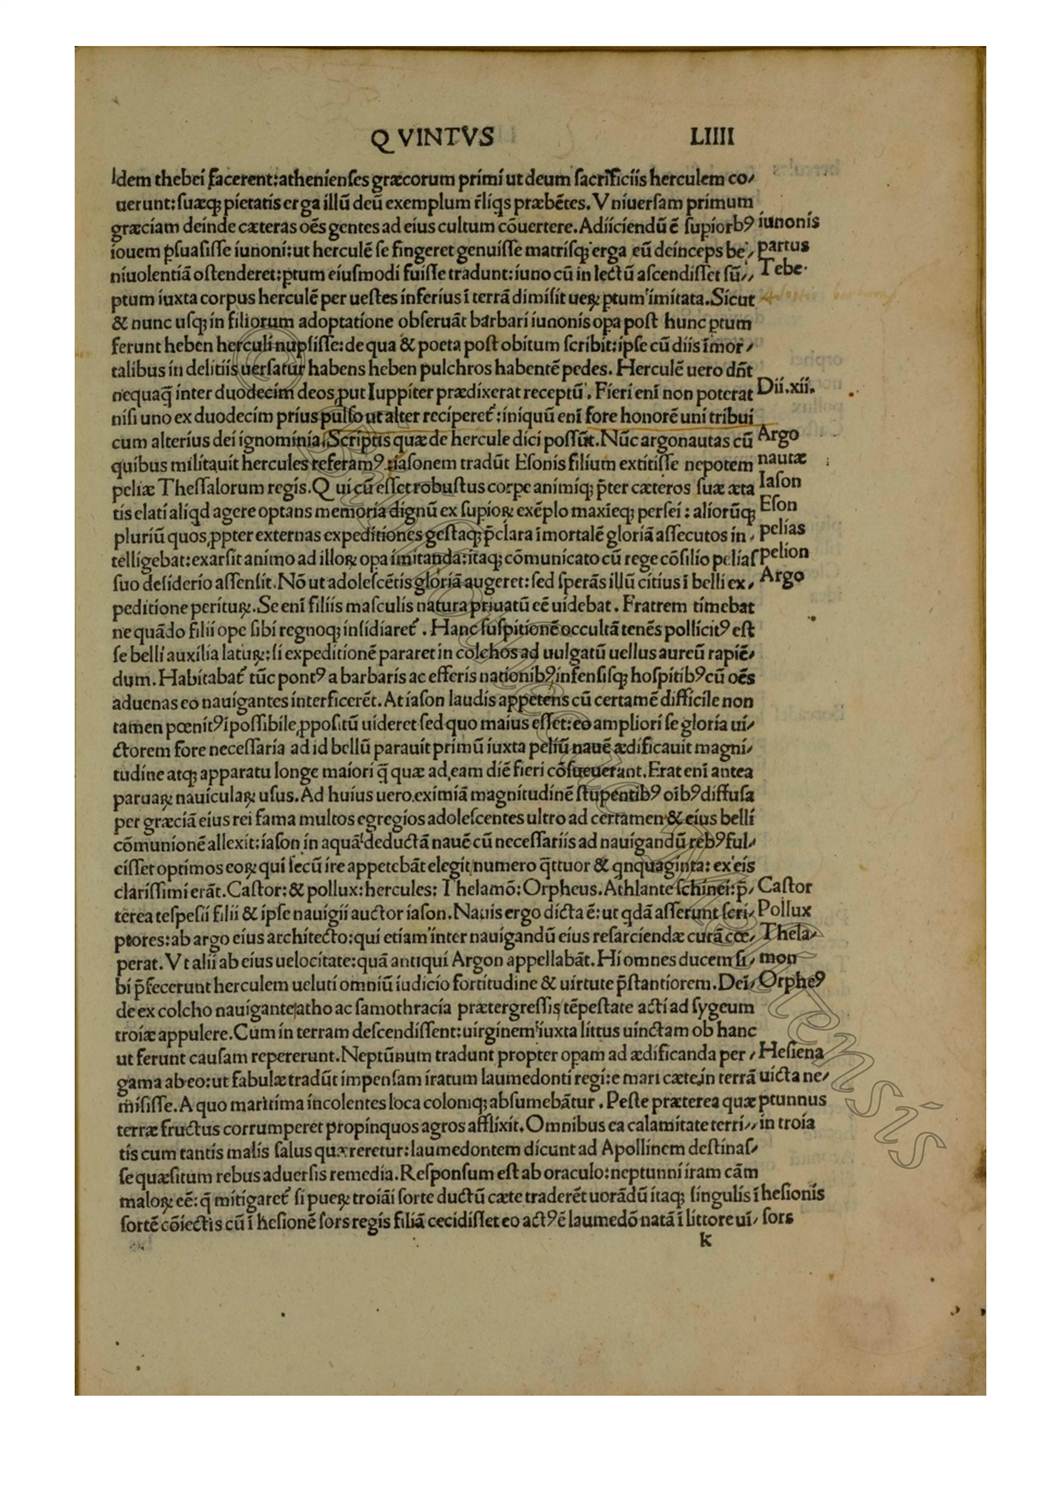 QVINTVS LIIII
Idem thebei facerent: athenienses græcorum primi ut deum sacrificiis herculem co/
uerunt: suæq; pietatis erga illũ deũ exemplum rl̃iqs præbẽtes. Vniuersam primum
græciam deinde cæteras oẽs gentes ad eius cultum cõuertere. Adiiciendũ ẽ supiorbꝰ
iunonis
iouem ꝑsuasisse iunoni: ut herculẽ se fingeret genuisse matrisq; erga eũ deinceps be/
partus
niuolentiã ostenderet: ꝑtum eiusmodi fuisse tradunt: iuno cũ in lectũ ascendisset sũ/
Tebe.
ptum iuxta corpus herculẽ per uestes inferius ĩ terrã dimisit ueꝝ ꝑtum imitata. Sicut
& nunc usq; in filiorum adoptatione obseruãt barbari iunonis opa post hunc ꝑtum
ferunt heben herculi nupsisse: de qua & poeta post obitum scribit: ipse cũ diis ĩmor/
talibus in delitiis uersatur habens heben pulchros habentẽ pedes. Herculẽ uero dñt
nequaq̃ inter duodecim deos, put Iuppiter prædixerat receptũ. Fieri enĩ non poterat
Dii.xii.
nisi uno ex duodecim prius pulso ut alter reciperet: iniquũ enĩ fore honorẽ uni tribui
cum alterius dei ignominia. Scriptis quæ de hercule dici possũt. Nũc argonautas cũ
Argo
quibus militauit hercules referamꝰ: iasonem tradũt Esonis filium extitisse nepotem
nautæ
peliæ Thessalorum regis. Qui cũ esset robustus corpe animiq; p̃ter cæteros suæ æta
Iason
tis elati aliqd agere optans memoria dignũ ex supioꝝ exẽplo maxieq; persei: aliorũq;
Eson
pluriũ quos ꝓpter externas expeditiones gestaq; p̃clara ĩmortalẽ gloriã assecutos in/
pelias
telligebat: exarsit animo ad illoꝝ opa imitanda: itaq; cõmunicato cũ rege cõsilio pelias
pelion
suo desiderio assensit. Nõ ut adolescẽtis gloriã augeret: sed sperãs illũ citius ĩ belli ex/
Argo
peditione perituꝝ. Se enĩ filiis masculis natura priuatũ eẽ uidebat. Fratrem timebat
ne quãdo filii ope sibi regnoq; insidiaret. Hanc suspitionẽ occultã tenẽs pollicitꝰ est
se belli auxilia latuꝝ: si expeditionẽ pararet in colchos ad uulgatũ uellus aureũ rapiẽ/
dum. Habitabat tũc pontꝰ a barbaris ac efferis nationibꝰ infensisq; hospitibꝰ cũ oẽs
aduenas eo nauigantes interficerẽt. At iason laudis appetens cũ certamẽ difficile non
tamen pœnitꝰ ĩpossibile, ꝓpositũ uideret sed quo maius esset: eo ampliori se gloria ui/
ctorem fore necessaria ad id bellũ parauit primũ iuxta peliũ nauẽ ædificauit magni/
tudine atq; apparatu longe maiori q̃ quæ ad eam diẽ fieri cõsueuerant. Erat enĩ antea
paruaꝝ nauiculaꝝ usus. Ad huius uero eximiã magnitudinẽ stupentibꝰ oĩbꝰ diffusa
per græciã eius rei fama multos egregios adolescentes ultro ad certamen & eius belli
cõmunionẽ allexit: iason in aquã deductã nauẽ cũ necessariis ad nauigandũ rebꝰ ful/
cisset optimos eoꝝ qui secũ ire appetebãt elegit numero q̃ttuor & qnquaginta: ex eis
clarissimi erãt. Castor: & pollux: hercules: Thelamõ: Orpheus. Athlante schinei: p̃/
Castor
terea tespesii filii & ipse nauigii auctor iason. Nauis ergo dicta ẽ: ut qdã asserunt scri/
Pollux
ptores: ab argo eius architecto: qui etiam inter nauigandũ eius resarciendæ curã cœ/
Thela/
perat. Vt alii ab eius uelocitate: quã antiqui Argon appellabãt. Hi omnes ducem si/
mon
bi p̃fecerunt herculem ueluti omniũ iudicio fortitudine & uirtute p̃stantiorem. Dei/
Orpheꝰ
de ex colcho nauigante, atho ac samothracia prætergressis tẽpestate acti ad sygeum
troiæ appulere. Cum in terram descendissent: uirginem iuxta littus uinctam ob hanc
ut ferunt causam repererunt. Neptũnum tradunt propter opam ad ædificanda per/
Hesiena
gama ab eo: ut fabulæ tradũt impensam iratum laumedonti regi: e mari cæte, in terrã
uicta ne/
misisse. A quo maritima incolentes loca coloniq; absumebãtur. Peste præterea quæ
ptunnus
terræ fructus corrumperet propinquos agros afflixit. Omnibus ea calamitate terri/
in troia
tis cum tantis malis salus quæreretur: laumedontem dicunt ad Apollinem destinas/
se quæsitum rebus aduersis remedia. Responsum est ab oraculo: neptunni iram cãm
maloꝝ eẽ: q̃ mitigaret si pueꝝ troiãi sorte ductũ cæte traderẽt uorãdũ itaq; singulis ĩ
hesionis
sortẽ cõiectis cũ ĩ hesionẽ sors regis filiã cecidisset eo actꝰ ẽ laumedõ natã ĩ littore ui/
sors
k